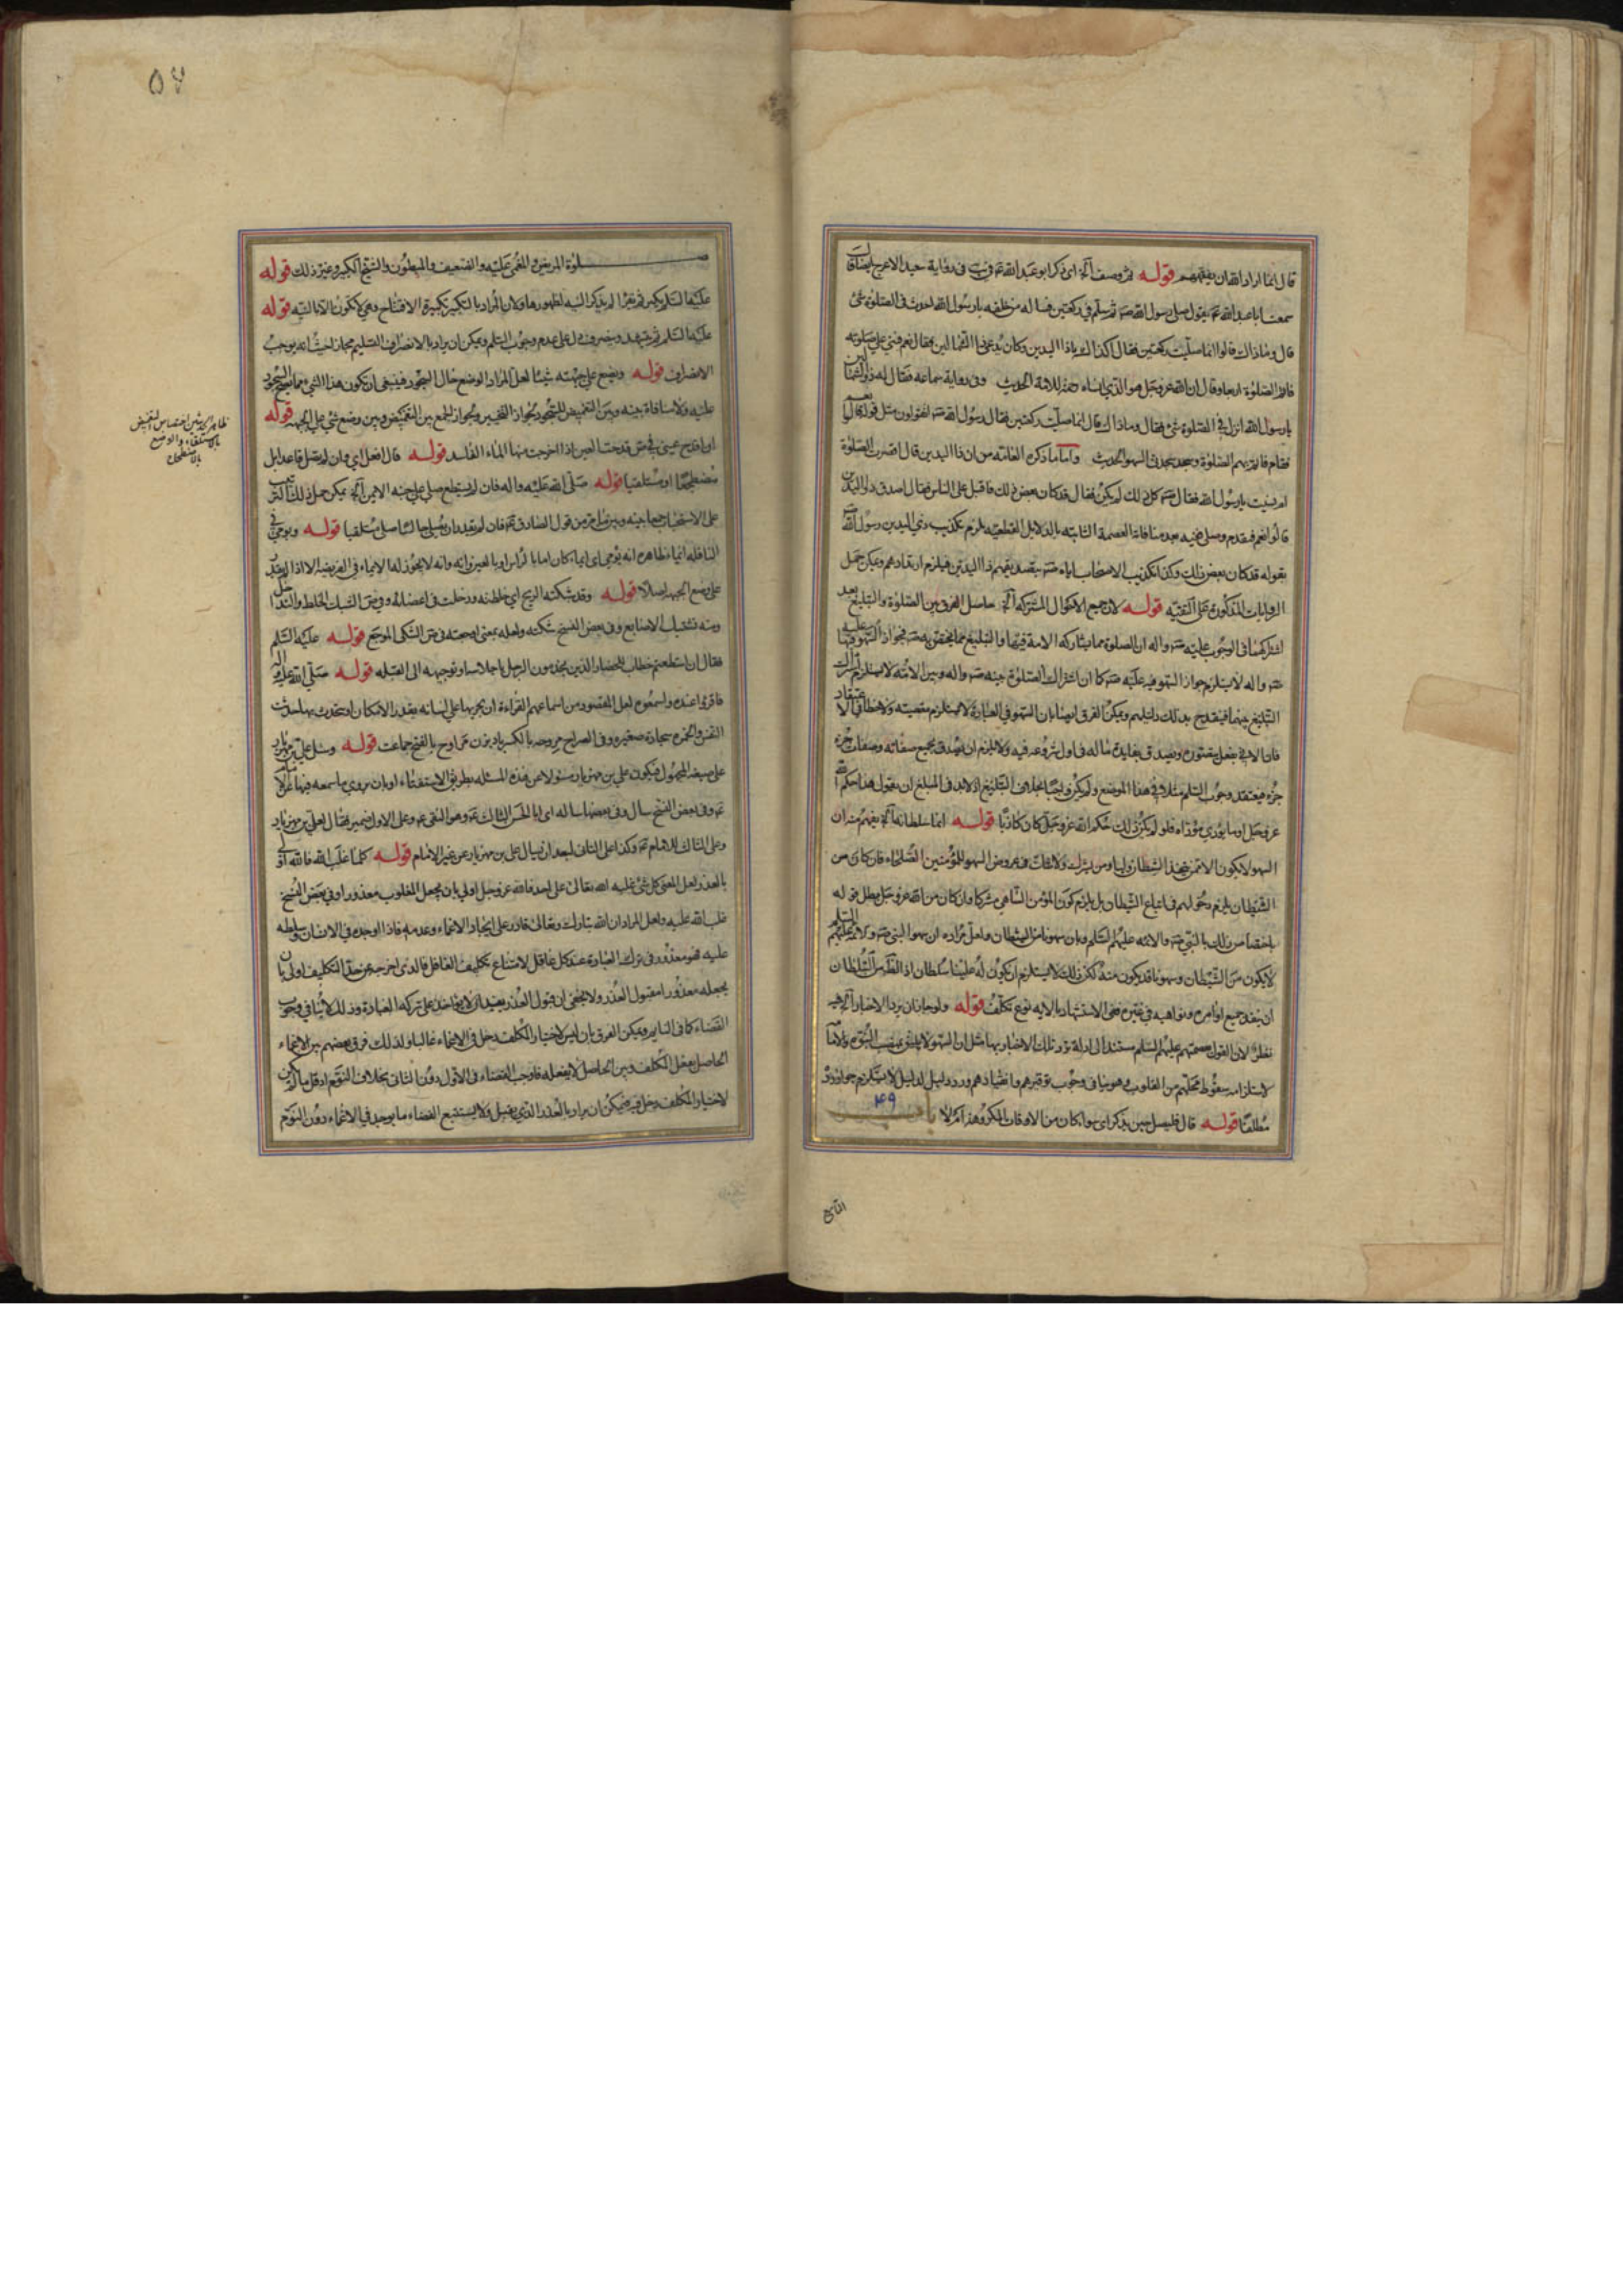 قال انما اراد الله ان يفقههم قوله ثم وصف آلخ اى ذكر ابو عبد الله عم فى رواية سعيد الاعرج ايضا قال
سمعت ابا عبد الله عم يقول صلى رسول الله صم ثم سلم فى ركعتين فساله من خلفه يا رسول الله احدث فى الصلوة شئ
قال وما ذاك قالوا انما صليت ركعتين فقال اكذاك يا ذا اليدين وكان يدعى ذا الشمالين فقال نعم فبنى على صلوته
فاتم الصلوة اربعا وقال ان الله عز وجل هو الذى انساه رحمة للامة الحديث وفى رواية سماعه فقال له ذو الشمالين
يا رسول الله انزل فى الصلوة شئ فقال وما ذاك قال انما صليت ركعتين فقال رسول الله صم اتقولون مثل قوله قالوا نعم
فقام فاتم بهم الصلوة وسجد سجدتى السهو الحديث واما ما ذكره العامة من ان ذا اليدين قال اقصرت الصلوة
ام نسيت يا رسول الله فقال صم كل ذلك لم يكن فقال قد كان بعض ذلك فاقبل على الناس فقال اصدق ذو اليدين
قالوا نعم فتقدم وصلى فبعد منافاة العصمة الثابته بالدلايل القطعيه يلزم تكذيب ذى اليدين رسول الله صم
بقوله قد كان بعض ذلك وكذا تكذيب الاصحاب اياه صم بتصديقهم ذا اليدين فيلزم ارتدادهم ويمكن حمل
الروايات المذكورة على التقيه قوله لان جميع الاحوال المشتركه آلخ حاصل الفرق بين الصلوة والتبليغ بعد
اشتراكهما فى الوجوب عليه صم واله ان الصلوة مما يشاركه الامة فيها والتبليغ مما يختص به صم فجواز السهو فيها عليه
صم واله لا يستلزم جواز السهو فيه عليه صم كما ان اشتراك الصلوة بينه صم واله وبين الامه لا يستلزم اشتراك
التبليغ بينهما فينقدح بذلك دليلهم ويمكن الفرق ايضا بان السهو فى العبادة لا يستلزم معصيته ولا خطا فى الاعتقاد
جزء فيعتقد وجوب السلم مثلا فى هذا الموضع ولم يكن واجبا بخلاف التبليغ اذ لابد فى المبلغ ان يقول هذا حكم الله
عز وجل او ما يؤدى مؤداه فلو لم يكن ذلك حكم الله عز وجل كان كاذبا قوله انما سلطانه آلخ يفهم منه ان
السهو لا يكون الا ممن يتخذ الشيطان وليا ومن يشرك ولا شك فى عروض السهو للمؤمنين الصلحاء فان كان من
الشيطان يلزم دخولهم فى اتباع الشيطان بل يلزم كون المؤمن الساهى مشركا وان كان من الله عز وجل بطل قوله
باختصاص ذلك بالنبى صم والائمه عليهم السلم وبان سهونا من الشيطان ولعل مراده ان سهو النبى صم والائمه عليهم السلم
لا يكون من الشيطان وسهونا قد يكون منه لكن ذلك لا يستلزم ان يكون له علينا سلطان اذ الظ من السلطان
ان ينفد جميع اوامره ونواهيه فى غيره ففى الاستشهاد بالايه نوع تكلف قوله ولو جاز ان يرد الاخبار آلخ فيه
نظر لان القول بعصمتهم عليهم السلم مستند الى ادلة ترد تلك الاخبار بها مثل ان السهو لا يليق بمنصب النبوة والامامة
لاستلزامه سقوط محلهم من القلوب وهو ينافى وجوب توقيرهم وانقيادهم ورد دليل لدليل لا يستلزم جواز رده
مطلقا قوله قال فليصل حين يذكر اى سواء كان من الاوقات المكروهة ام لا باب
٤٩
التاسع
٥٧
صلوة المريض والمغمى عليه والضعيف والمبطون والشيخ الكبير وغير ذلك قوله
عليه السلم يكبر ثم يقرا لم يذكر النيه لظهورها ولان المراد بالتكبير تكبيرة الافتتاح وهى لا تكون الا بالنيه قوله
عليه السلم ثم يتشهد وينصرف دل على عدم وجوب السلم ويمكن ان يراد بالانصراف التسليم مجازا حيث انه يوجب
الانصراف قوله ويضع على جبهته شيئا لعل المراد الوضع حال السجود فينبغى ان يكون هذا الشئ مما يصح السجود
عليه ولا منافاة بينه وبين التغميض للسجود لجواز التخيير ولجواز الجمع بين التغميض وبين وضع شئ على الجبهه قوله
اقدح عينى فى ص قدحت العين اذا اخرجت منها الماء الفاسد قوله قال افعل اى وان لم تصل قاعدا بل
مضطجعا او مستلقيا قوله صلى الله عليه واله فان لم يستطع صلى على جنبه الايمن آلخ يمكن حمل ذلك الترتيب
على الاستحباب جمعا بينه وبين ما مر من قول الصادق عم فان لم يقدر ان يصلى جالسا صلى مستلقيا قوله ويومى فى
النافله ايماء ظاهره انه يومى اى ايماء كان اما بالراس او بالعين وانه لا يجوز له الايماء فى الفريضه الا اذا لم يقدر
على وضع الجبهه اصلا قوله وقد شبكته الريح اى خلطته ودخلت فى اعضائه وفى ص الشبك الخلط والتداخل
ومنه تشبيك الاصابع وفى بعض النسخ شكته ولعله بمعنى اوجعته فى ص الشكى الموجع قوله عليه السلم
فقال ان استطعتم خطاب للحضار الذين يخدمون الرجل باجلاسه او توجيهه الى القبله قوله صلى الله عليه واله
فاقرؤا عنده واسمعوه لعل المقصود من اسماعهم القراءة ان يجريها على لسانه بقدر الامكان او يتحدث بها حديث
النفس والخمره سجادة صغيره وفى الصراح مروحه بالكسر بادبزن مراوح بالفتح جماعت قوله وسئل على بن مهزيار
على صيغه المجهول فيكون على بن مهزيار مسئولا عن هذه المسئله بطريق الاستفتاء او بان يروى ما سمعه فيها عن الامام
عم وفى بعض النسخ سال وفى بعضها ساله اى ابا الحسن الثالث عم وهو النقى عم وعلى الاول ضمير فقال لعلى بن مهزيار
وعلى الثالث للامام عم وكذا على الثانى لبعد ان يسال على بن مهزيار عن غير الامام قوله كلما غلب الله فالله اولى
بالعذر لعل المعنى كل شئ غلبه الله تعالى على احد فالله عز وجل اولى بان يجعل المغلوب معذورا وفى بعض النسخ
غلب الله عليه ولعل المراد ان الله تبارك وتعالى قادر على ايجاد الاغماء وعدمه فاذا اوجده فى الانسان وسلطه
عليه فهو معذور فى ترك العبادة عند كل عاقل لامتناع تكليف الغافل فالذى اخرجه عن حد التكليف اولى بان
يجعله معذورا مقبول العذر ولا يخفى ان قبول العذر يفيد ان لا يؤاخذ على تركه العبادة وذلك لا ينافى وجوب
القضاء كما فى النايم ويمكن الفرق بان ليس لاختيار المكلف دخل فى الاغماء غالبا ولذلك فرق بعضهم بين الاغماء
الحاصل بفعل المكلف وبين الحاصل لا بفعله فاوجب القضاء فى الاول دون الثانى بخلاف النوم اذ قل ما لم يكن
لاختيار المكلف دخل فيه فيمكن ان يراد بالعذر الذى يقبل ولا يستتبع القضاء ما يوجد فى الاغماء دون النوم
ظاهر الحديثين اختصاص التغميض
بالاستلقاء والوضع
بالاضطجاع